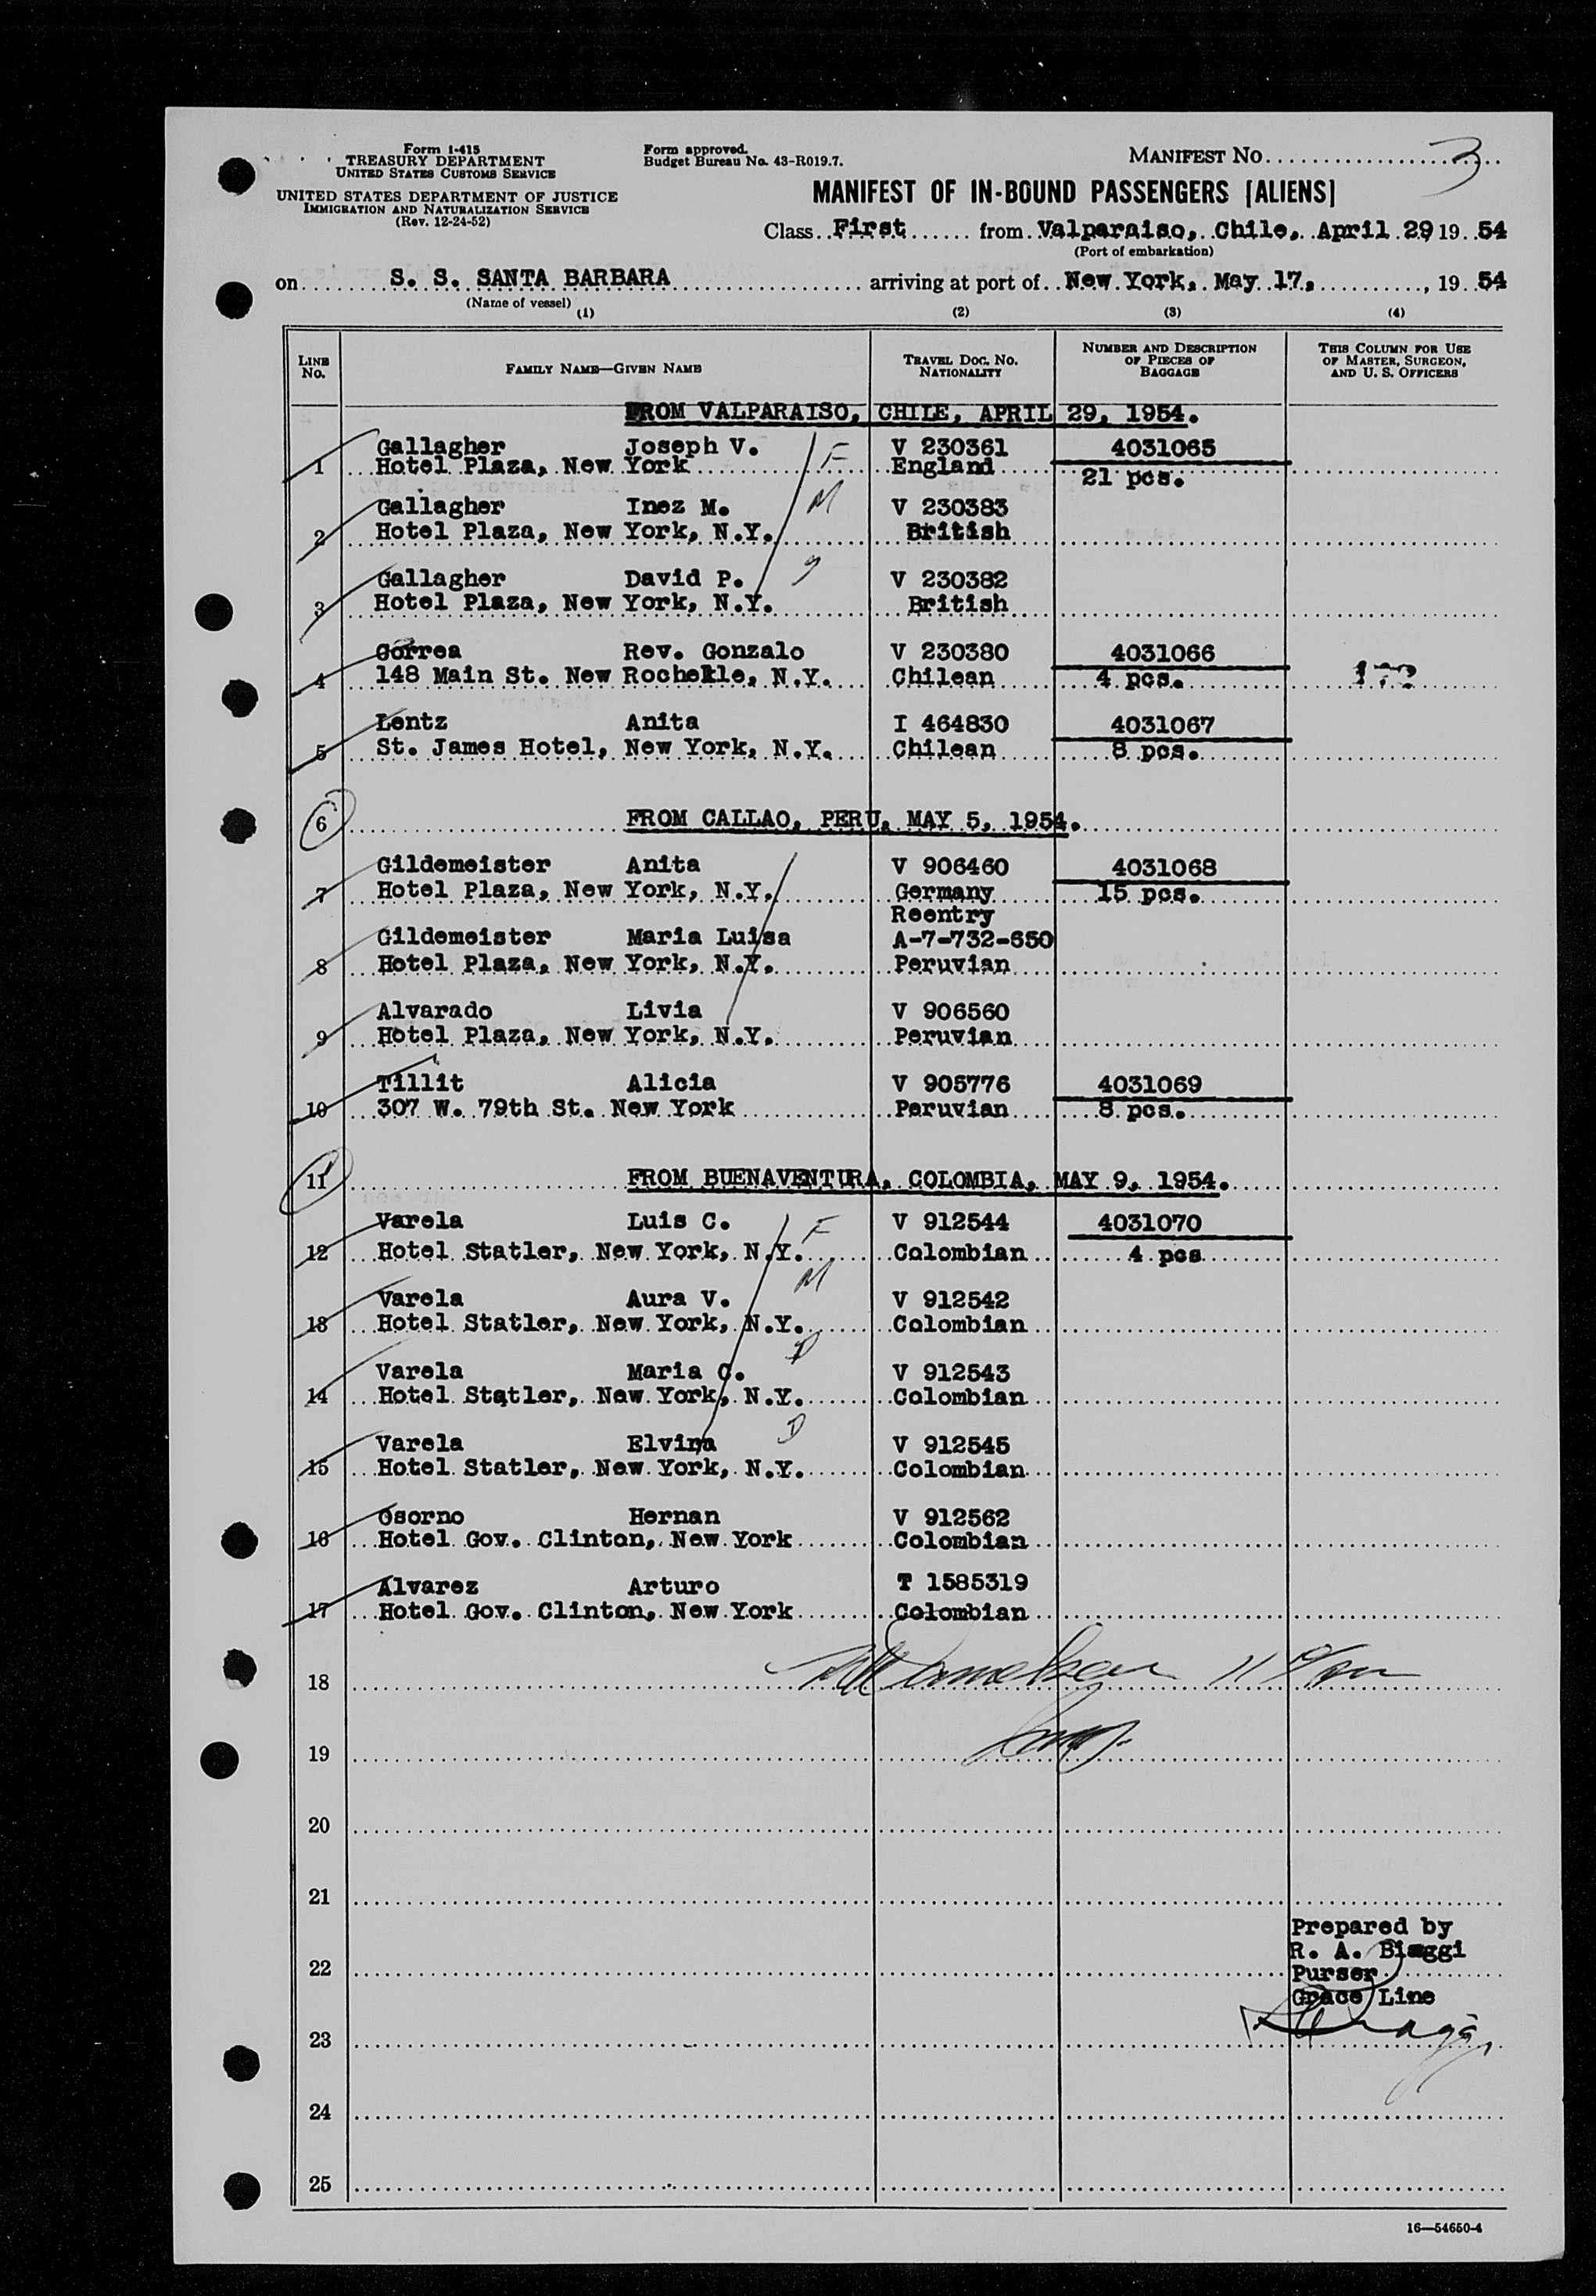 Form I-415
TREASURY DEPARTMENT
UNITED STATES CUSTOMS SERVICE
UNITED STATES DEPARTMENT OF JUSTICE
IMMIGRATION AND NATURALIZATION SERVICE
(Rev. 12-24-52)
Form approved.
Budget Bureau No. 43-R019.7.
MANIFEST NO. 3
MANIFEST OF IN-BOUND PASSENGERS [ALIENS]
Class First from Valparaiso, Chile, April 29 19 54
(Port of embarkation)
on S. S. SANTA BARBARA arriving at port of New York, May 17, , 19 54
(Name of vessel)
(1) (2) (3) (4)
LINE NO. FAMILY NAME—GIVEN NAME TRAVEL DOC. NO. NATIONALITY NUMBER AND DESCRIPTION OF PIECES OF BAGGAGE THIS COLUMN FOR USE OF MASTER, SURGEON, AND U. S. OFFICERS
FROM VALPARAISO, CHILE, APRIL 29, 1954.
Gallagher Joseph V. F V 230361 4031065
1 Hotel Plaza, New York England 21 pcs.
Gallagher Inez M. M V 230383
2 Hotel Plaza, New York, N.Y. British
Gallagher David P. V 230382
3 Hotel Plaza, New York, N.Y. British
Correa Rev. Gonzalo V 230380 4031066
4 148 Main St. New Rochelle, N.Y. Chilean 4 pcs.
Lentz Anita I 464830 4031067
5 St. James Hotel, New York, N.Y. Chilean 8 pcs.
6 FROM CALLAO, PERU, MAY 5, 1954.
Gildemeister Anita V 906460 4031068
7 Hotel Plaza, New York, N.Y. Germany 15 pcs.
Reentry
Gildemeister Maria Luisa A-7-732-650
8 Hotel Plaza, New York, N.Y. Peruvian
Alvarado Livia V 906560
9 Hotel Plaza, New York, N.Y. Peruvian
Tillit Alicia V 905776 4031069
10 307 W. 79th St. New York Peruvian 8 pcs.
11 FROM BUENAVENTURA, COLOMBIA, MAY 9, 1954.
Varela Luis C. F V 912544 4031070
12 Hotel Statler, New York, N.Y. Colombian 4 pcs
Varela Aura V. M V 912542
13 Hotel Statler, New York, N.Y. Colombian
Varela Maria C. D V 912543
14 Hotel Statler, New York, N.Y. Colombian
Varela Elvira D V 912545
15 Hotel Statler, New York, N.Y. Colombian
Osorno Hernan V 912562
16 Hotel Gov. Clinton, New York Colombian
Alvarez Arturo T 1585319
17 Hotel Gov. Clinton, New York Colombian
18
19
20
21
Prepared by
R. A. Biaggi
22 Purser
Grace Line
23
24
25
16—54650-4